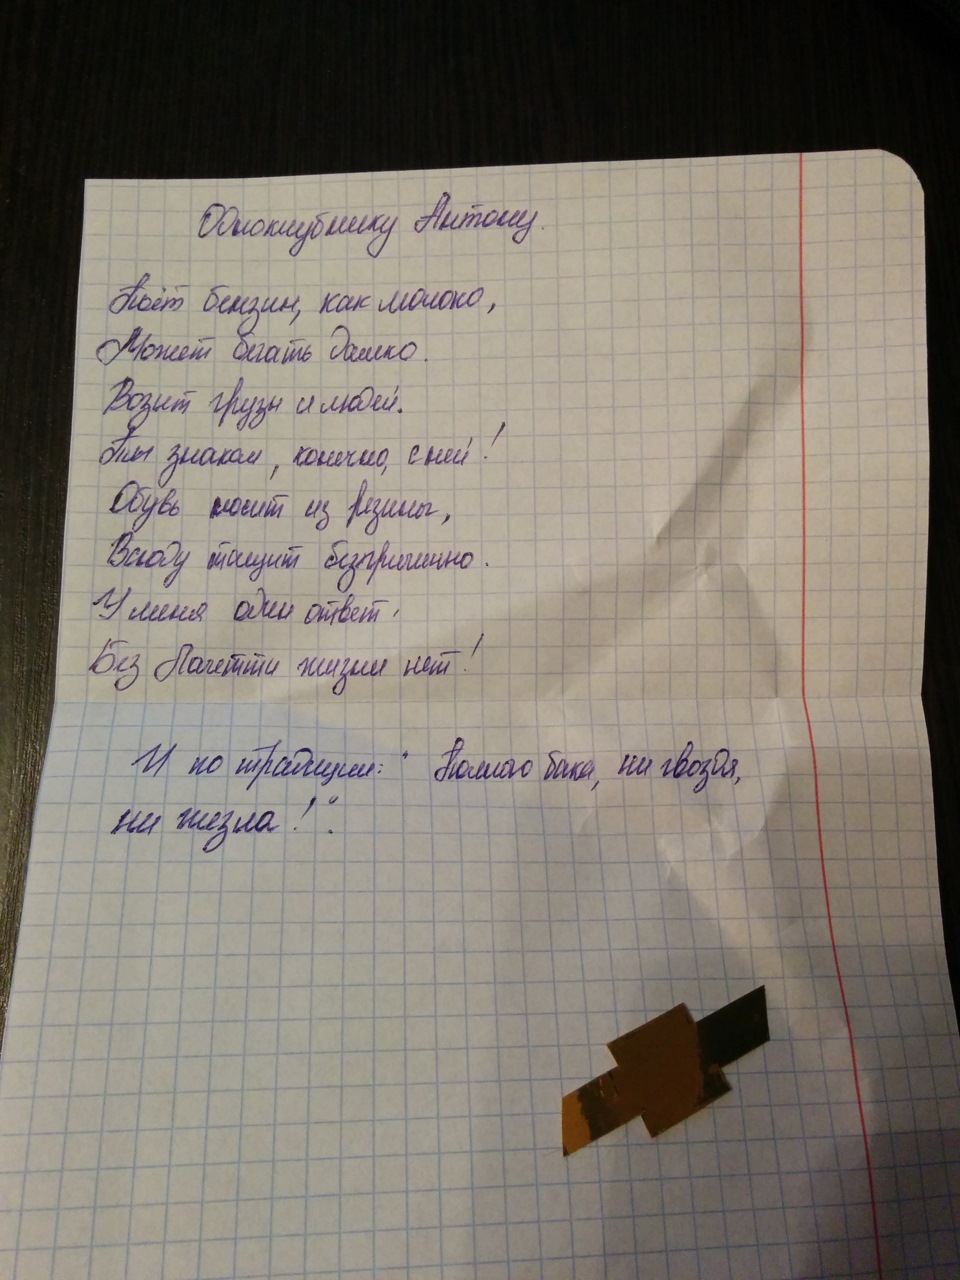 Одноклубнику Антону.
Пьёт бензин, как молоко,
Может бегать далеко.
Возит грузы и людей.
Ты знаком, конечно, с ней!
Обувь носит из резины,
Всюду тащит
У меня один ответ:
Без Лачетти жизни нет!
И по традиции: "Полного бака, ни гвоздя,
ни жезла!".